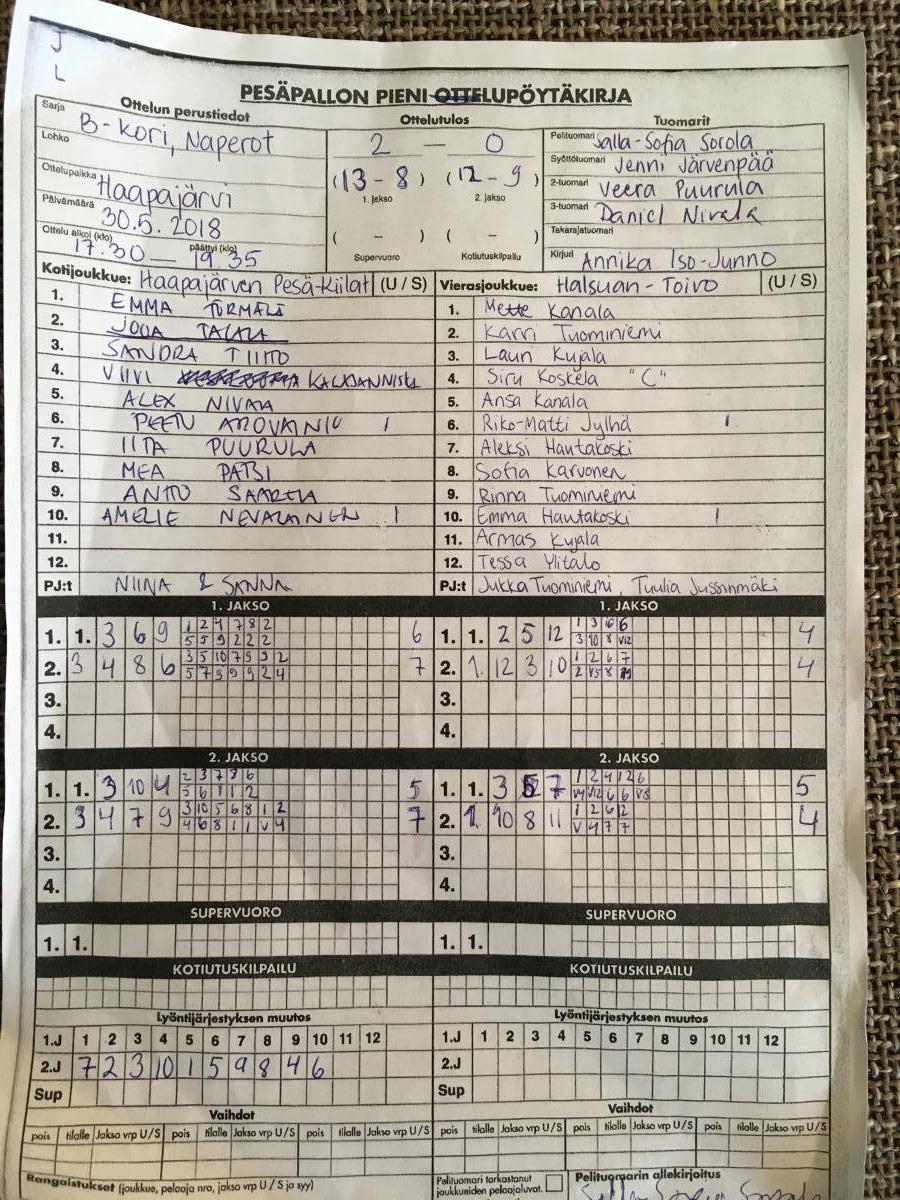 J
L
PESÄPALLON PIENI OTTELUPÖYTÄKIRJA
Ottelun perustiedot
Ottelutulos
Tuomarit
Sarja B-kori, Naperot
Lohko
Ottelupaikka Haapajärvi
Päivämäärä 30.5. 2018
Ottelu alkoi (klo) 17.30 — päättyi (klo) 19.35
2 — 0
(13 - 8) (12 - 9)
1. jakso 2. jakso
( - ) ( - )
Supervuoro Kotiutuskilpailu
Pelituomari Salla-Sofia Sorola
Syöttötuomari Jenni Järvenpää
2-tuomari Veera Puurula
3-tuomari Daniel Nivala
Takarajatuomari
Kirjuri Annika Iso-Junno
Kotijoukkue: Haapajärven Pesä-Kiilat (U / S)
1. EMMA TÖRMÄLÄ
2. JOUA TALALA
3. SANDRA TIITTO
4. VIIVI
5. ALEX NIVALA
6. PEETU AROVAINIO 1
7. IITA PUURULA
8. MEA PATSI
9. ANTTO SAARELA
10. AMELIE NEVALAINEN 1
11.
12.
PJ:t NIINA & SANNA
Vierasjoukkue: Halsuan - Toivo (U / S)
1. Mette Kanala
2. Karri Tuominiemi
3. Lauri Kujala
4. Siru Koskela "C"
5. Ansa Kanala
6. Riko-Matti Jylhä 1
7. Aleksi Hautakoski
8. Sofia Karvonen
9. Rinna Tuominiemi
10. Emma Hautakoski 1
11. Armas Kujala
12. Tessa Ylitalo
PJ:t Jukka Tuominiemi, Tuulia Jussinmäki
1. JAKSO
1. 1. 3 6 9 1 2 4 7 8 2 6
5 5 9 2 2 2
2. 3 4 8 6 3 5 10 7 9 9 2 7
5 7 9 9 9 2 4
3.
4.
1. JAKSO
1. 1. 2 5 12 1 3 6 6 4
3 10 8 V12
2. 1. 12 3 10 1 2 6 7 4
2 V5 8
3.
4.
2. JAKSO
1. 1. 3 10 4 2 3 7 8 6 5
5 6 1 1 2
2. 3 4 7 9 3 10 5 6 8 1 2 7
4 6 8 1 1 V 4
3.
4.
2. JAKSO
1. 1. 3 5 7 1 2 4 12 6 5
V4 V12 6 6 V8
2. 1. 10 8 11 1 2 6 12 4
V 4 7 7
3.
4.
SUPERVUORO
1. 1.
SUPERVUORO
1. 1.
KOTIUTUSKILPAILU
KOTIUTUSKILPAILU
Lyöntijärjestyksen muutos
1.J 1 2 3 4 5 6 7 8 9 10 11 12
2.J 7 2 3 10 1 5 9 8 4 6
Sup
Lyöntijärjestyksen muutos
1.J 1 2 3 4 5 6 7 8 9 10 11 12
2.J
Sup
Vaihdot
pois tilalle Jakso vrp U / S pois tilalle Jakso vrp U / S pois tilalle Jakso vrp U / S
Vaihdot
pois tilalle Jakso vrp U / S pois tilalle Jakso vrp U / S pois tilalle Jakso vrp U / S
Rangaistukset (joukkue, pelaaja nro, jakso vrp U / S ja syy)
Pelituomari tarkastanut
joukkueiden pelaajaluvat.
Pelituomarin allekirjoitus